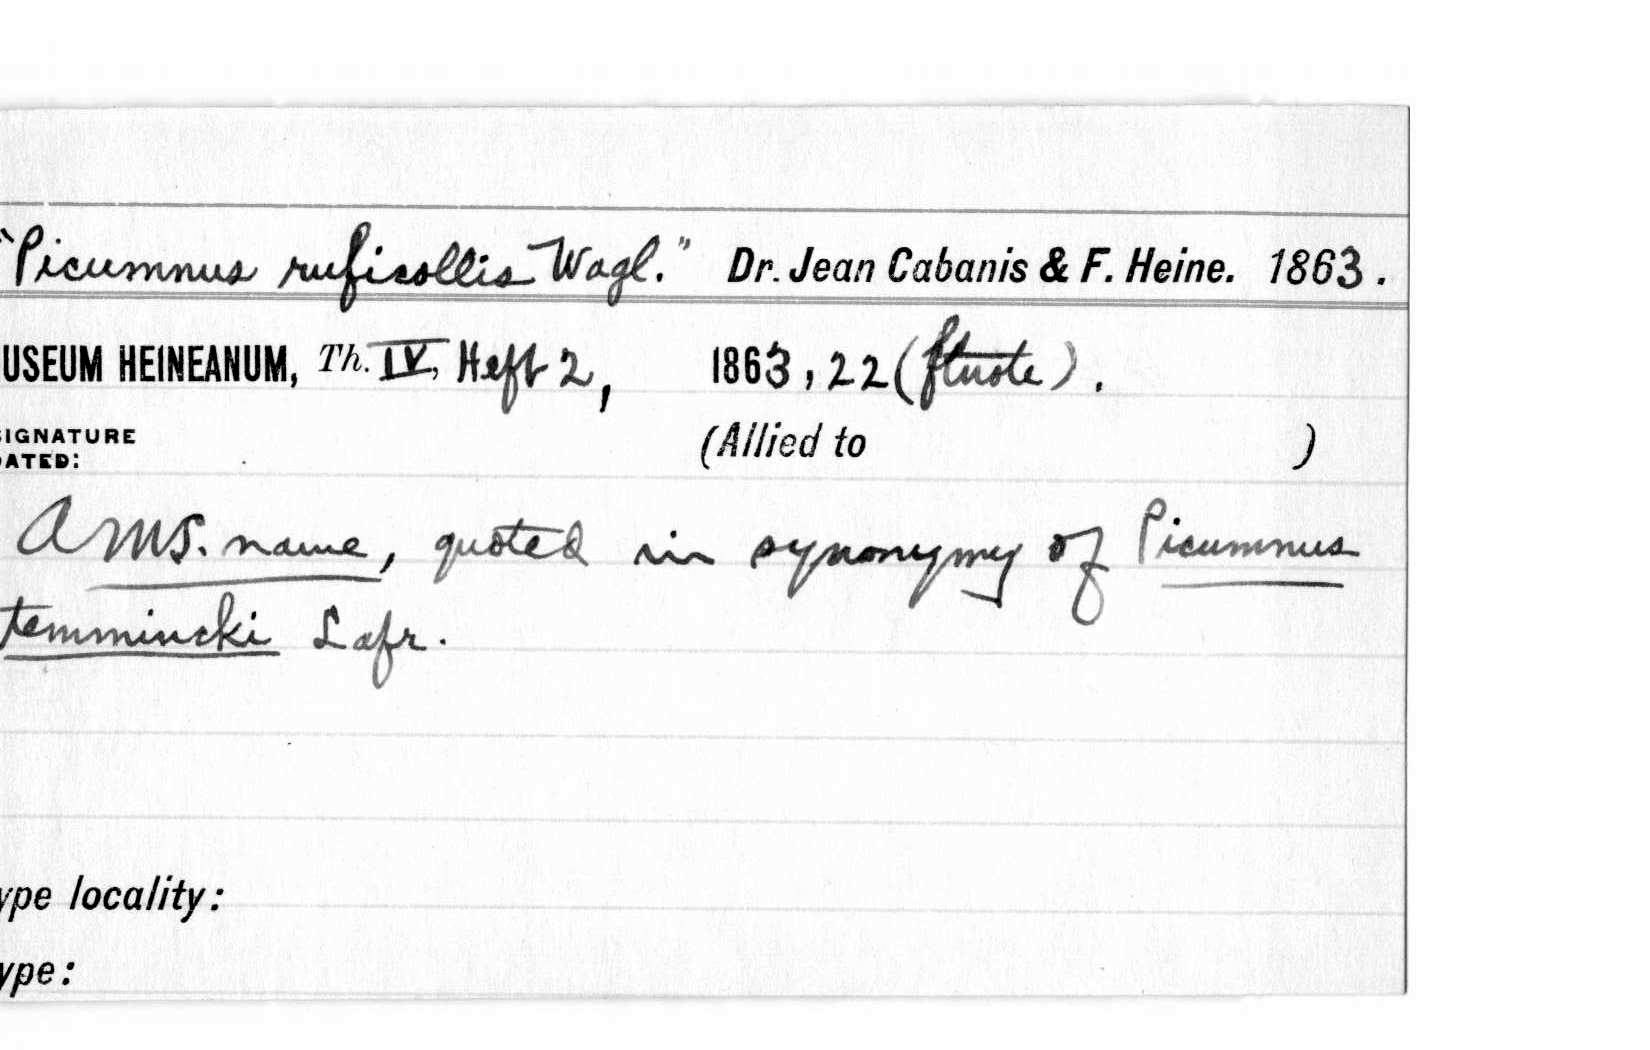 "Picumnus ruficollis Wagl." Dr. Jean Cabanis & F. Heine. 1863.
USEUM HEINEANUM, Th. IV, Heft 2, 1863, 22 (ftnote).
SIGNATURE
DATED:
(Allied to )
A MS. name, quoted in synonymy of Picumnus
temmincki Lafr.
ype locality:
ype: